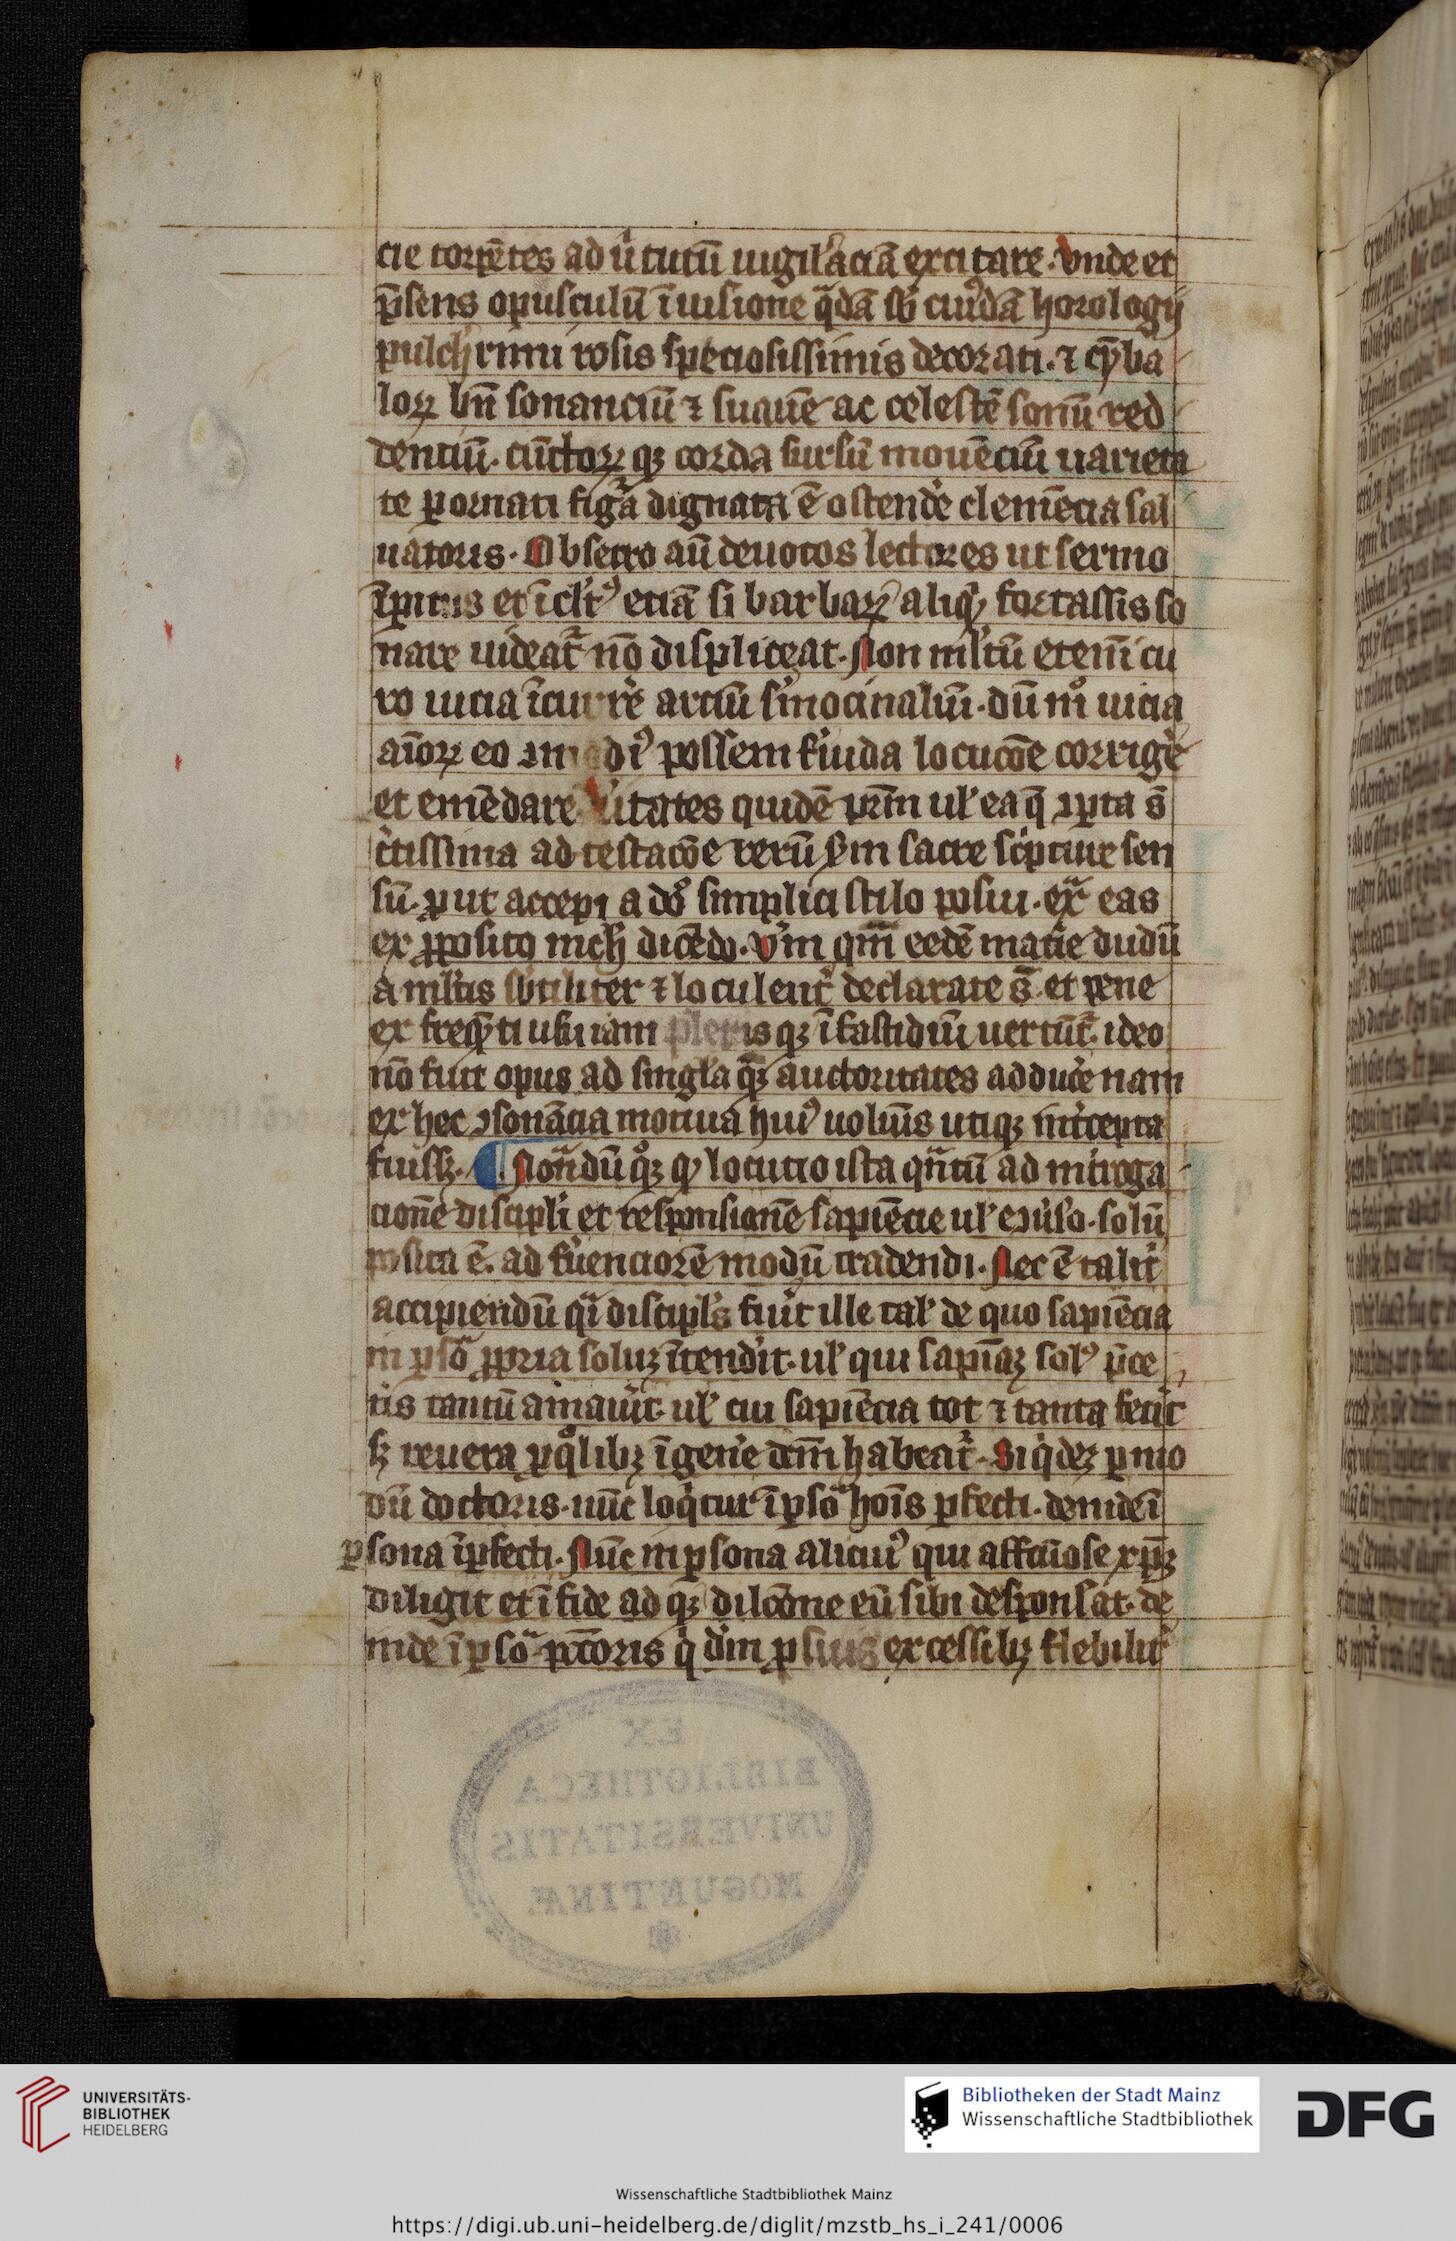 cie torrētes ad u̓tutū uigil̓āciā excitare. Vnde et
p̄sens opusculū ī uisione q̄dā sb̓ cui᷒dā horologij
pulch̓rimi rosis speciosissimis decorati. ⁊ cȳba
loꝝ bn̄ sonanciū ⁊ suauē ac celestē sonū red
denciū. cūctoꝝ qꝫ corda sursū mouēciū uarieta
te ꝑornati figᷓa dignata ē ostende̓ clemēcia sal
uatoris. Obsecro aū deuotos lectores ut sermo
īpitus et īclt᷒ eciā si barbaꝝ aliqͥd fortassis so
nare uideat᷑ nō displiceat. Non ml̓tū etenī cu
ro uicia īcurrē arciū s̓mocinaliū. dū mͦ uicia
aīoꝝ eo ꝯmodi᷒ possem f̓uida locucōe corrige̓
et emēdare. U̓itates quidē prīm ul̓ ea q̄ ꝯp̱ta s̄
c̓tissima ad testacōe rerū ꝟm sacre sc̓pture sen
sū. ꝓut accepi a dō simplici stilo posui. exᷓ eas
ex ꝓposito mch̓ dicēdo. Ꝟm qm̄ eedē matīe dudū
a ml̓tis sb̓tiliter ⁊ loculent̓ declarate s̄ et pene
ex freq̄ti usu iam pleris qꝫ ī fastidiū uertūt᷑ ideo
nō fuit opus ad singl̓a qᷓꝫ auctoritates adduce̓ nam
ex hec ꝯsonācia motiua hui᷒ uolum̄s utiqꝫ int̓cepta
fuissꝫ. ¶ Notᷓndū qͦꝫ ꝙ locutio ista qn̄tū ad int̓roga
cionē discipl̓i et responsionē sapiēcie ul̓ eꝯu̓so. solū
posita ē. ad fu̓enciorē modū tradendi. Nec ē talit̓
accipiendū qͥ discipl̓s fu̓it ille tal̓ de quo sapiēcia
in ꝑsoᷓ ꝓpria soluꝫ ītendit. ul̓ qui sapīaꝫ sol᷒ p̄ce
ris tantū amauit. ul̓ cui sapiēcia tot ⁊ tanta fecit
sꝫ reuera ꝑ qͦlibꝫ ī gen̓e dcm̄ habeat᷑. Siqͥdeꝫ ꝑ mo
dū doctoris. nūc loqͥtur ī ꝑsoᷓ hoīs ꝑfecti. deinde ī
ꝑsona īꝑfecti. Nūc in ꝑsona alicui᷒ qui affcuose xp̄ꝫ
diligit et ī fide ad qꝫ dilcōme eū sibi desponsat. de
inde ī ꝑsoᷓ pctoris qͥ dm̄ ꝑ suis excessibꝫ flebilit̓
EX
BIBLIOTHECA
UNIVERSITATIS
MOGUNTINÆ
UNIVERSITÄTS-
BIBLIOTHEK
HEIDELBERG
Bibliotheken der Stadt Mainz
Wissenschaftliche Stadtbibliothek
DFG
Wissenschaftliche Stadtbibliothek Mainz
https://digi.ub.uni-heidelberg.de/diglit/mzstb_hs_i_241/0006